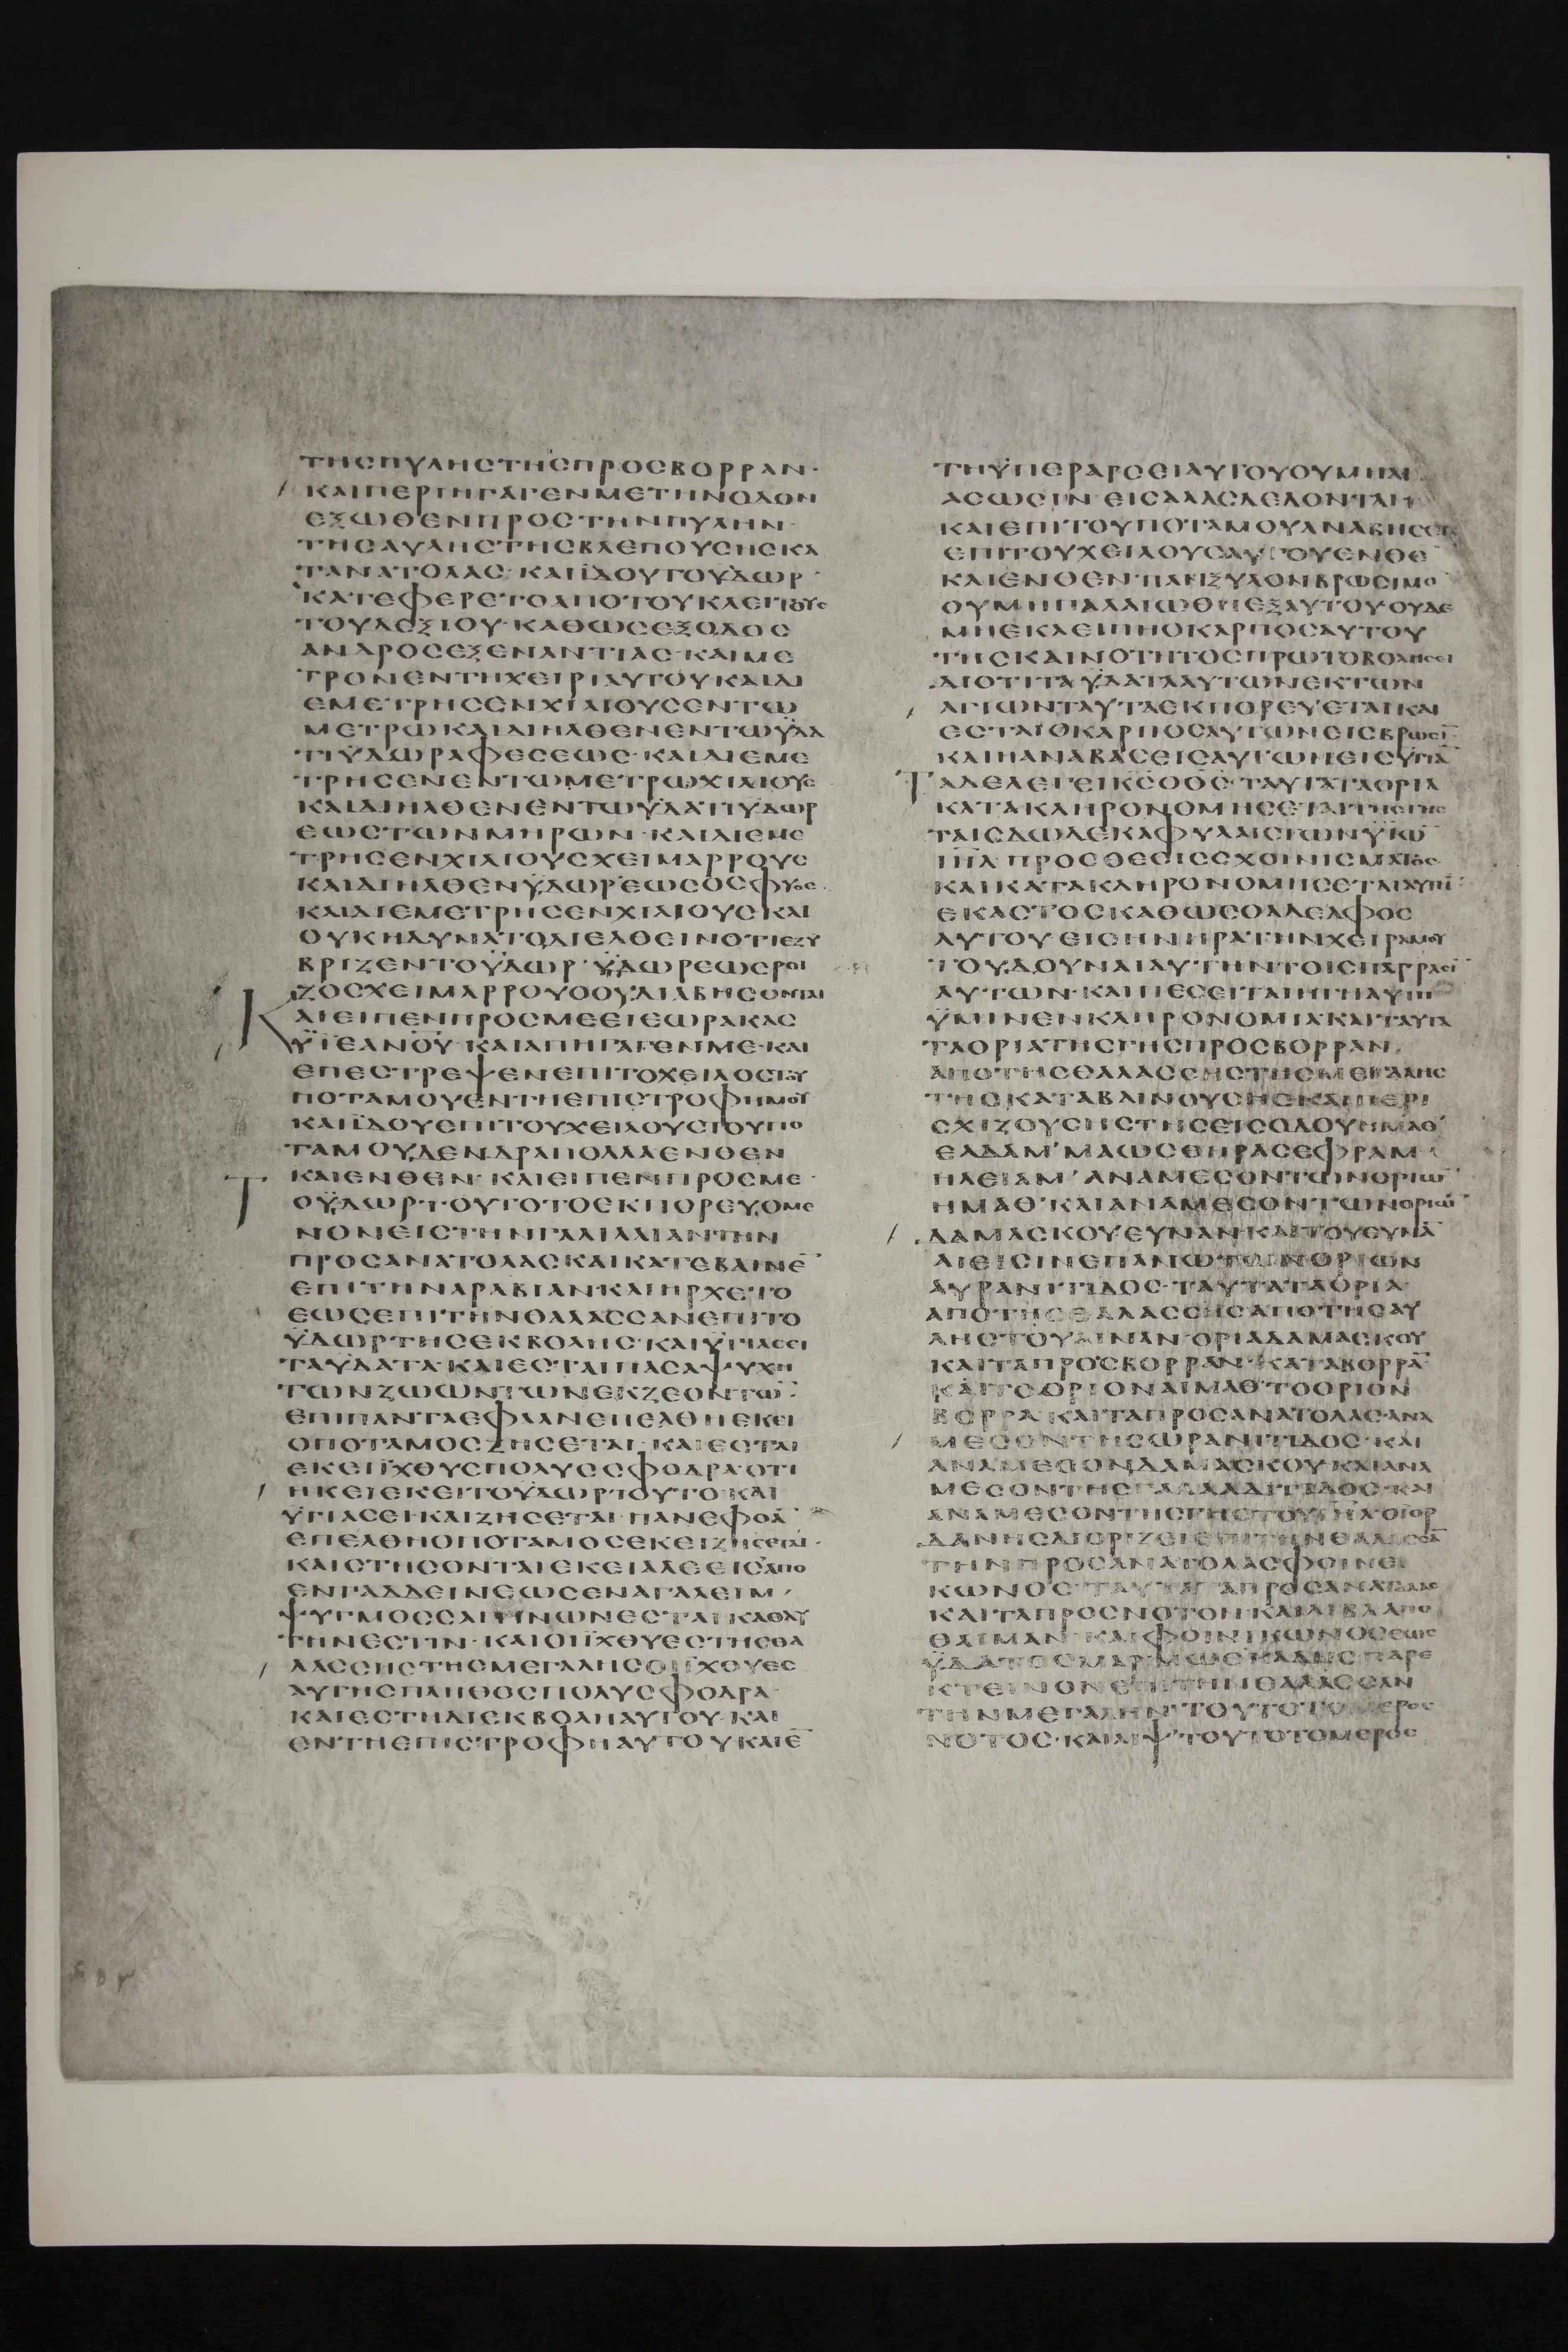 ΤΗΣΠΥΛΗΣΤΗΣΠΡΟΣΒΟΡΡΑΝ·
ΚΑΙΠΕΡΙΗΓΑΓΕΝΜΕΤΗΝΟΔΟΝ
ΕΞΩΘΕΝΠΡΟΣΤΗΝΠΥΛΗΝ·
ΤΗΣΑΥΛΗΣΤΗΣΒΛΕΠΟΥΣΗΣΚΑ
ΤΑΝΑΤΟΛΑΣ· ΚΑΙΪΔΟΥΤΟΥΔΩΡ·
ΚΑΤΕΦΕΡΕΤΟΑΠΟΤΟΥΚΛΕΙΤΟΥΣ
ΤΟΥΔΕΞΙΟΥ·ΚΑΘΩΣΕΞΟΔΟΣ
ΑΝΔΡΟΣΕΞΕΝΑΝΤΙΑΣ·ΚΑΙΜΕ
ΤΡΟΝΕΝΤΗΧΕΙΡΙΑΥΤΟΥΚΑΙΔΙ
ΕΜΕΤΡΗΣΕΝΧΙΛΙΟΥΣΕΝΤΩ
ΜΕΤΡΩΚΑΙΔΙΗΛΘΕΝΕΝΤΩΫΔΑ
ΤΙΫΔΩΡΑΦΕΣΕΩΣ·ΚΑΙΔΙΕΜΕ
ΤΡΗΣΕΝΕΝΤΩΜΕΤΡΩΧΙΛΙΟΥΣ
ΚΑΙΔΙΗΛΘΕΝΕΝΤΩΫΔΑΤΙΫΔΩΡ
ΕΩΣΤΩΝΜΗΡΩΝ·ΚΑΙΔΙΕΜΕ
ΤΡΗΣΕΝΧΙΛΙΟΥΣΧΕΙΜΑΡΡΟΥΣ
ΚΑΙΔΙΗΛΘΕΝΫΔΩΡΕΩΣΟΣΦΥΟΣ·
ΚΑΙΔΙΕΜΕΤΡΗΣΕΝΧΙΛΙΟΥΣΚΑΙ
ΟΥΚΗΔΥΝΑΤΟΔΙΕΛΘΕΙΝΟΤΙΕΖΥ
ΒΡΙΖΕΝΤΟΫΔΩΡ·ΫΔΩΡΕΩΣΡΟΙ
ΖΟΣΧΕΙΜΑΡΡΟΥΟΟΥΔΙΑΒΗΣΟΝΤΑΙ
ΚΑΙΕΙΠΕΝΠΡΟΣΜΕΕΙΕΩΡΑΚΑΣ
ΫΪΕΑΝΟΥ·ΚΑΙΑΠΗΓΑΓΕΝΜΕ·ΚΑΙ
ΕΠΕΣΤΡΕΨΕΝΕΠΙΤΟΧΕΙΛΟΣΤΟΥ
ΠΟΤΑΜΟΥΕΝΤΗΕΠΙΣΤΡΟΦΗΜΟΥ
ΚΑΙΪΔΟΥΕΠΙΤΟΥΧΕΙΛΟΥΣΤΟΥΠΟ
ΤΑΜΟΥΔΕΝΔΡΑΠΟΛΛΑΕΝΘΕΝ
ΚΑΙΕΝΘΕΝ·ΚΑΙΕΙΠΕΝΠΡΟΣΜΕ·
ΤΟΫΔΩΡ·ΤΟΥΤΟΤΟΕΚΠΟΡΕΥΟΜΕ
ΝΟΝΕΙΣΤΗΝΓΑΛΙΛΑΙΑΝΤΗΝ
ΠΡΟΣΑΝΑΤΟΛΑΣΚΑΙΚΑΤΕΒΑΙΝΕ̅
ΕΠΙΤΗΝΑΡΑΒΙΑΝ·ΚΑΙΗΡΧΕΤΟ
ΕΩΣΕΠΙΤΗΝΘΑΛΑΣΣΑΝΕΠΙΤΟ
ΫΔΩΡΤΗΣΕΚΒΟΛΗΣ·ΚΑΙΫΓΙΑΣΕΙ
ΤΑΫΔΑΤΑ·ΚΑΙΕΣΤΑΙΠΑΣΑΨΥΧΗ
ΤΩΝΖΩΩΝΤΩΝΕΚΖΕΟΝΤΩ̅
ΕΠΙΠΑΝΤΑΕΦΑΑΝΕΠΕΛΘΗΕΚΕΙ
ΟΠΟΤΑΜΟΣΖΗΣΕΤΑΙ·ΚΑΙΕΣΤΑΙ
ΕΚΕΙΪΧΘΥΣΠΟΛΥΣΣΦΟΔΡΑ·ΟΤΙ
ΗΚΕΙΕΚΕΙΤΟΥΔΩΡΤΟΥΤΟ·ΚΑΙ
ΫΓΙΑΣΕΙ·ΚΑΙΖΗΣΕΤΑΙ·ΠΑΝΕΦΟΑ̅
ΕΠΕΛΘΗΟΠΟΤΑΜΟΣΕΚΕΙΖΗΣΕΤΑΙ·
ΚΑΙΣΤΗΣΟΝΤΑΙΕΚΕΙΑΛΕΕΙΣΑΠΟ
ΕΝΓΑΔΔΕΙΝΕΩΣΕΝΑΓΑΛΕΙΜ·
ΨΥΓΜΟΣΣΑΓΗΝΩΝΕΣΤΑΙ·ΚΑΘΑΥ
ΤΗΝΕΣΤΙΝ·ΚΑΙΟΙΪΧΘΥΕΣΤΗΣΘΑ
ΛΑΣΣΗΣΤΗΣΜΕΓΑΛΗΣΟΙΪΧΘΥΕΣ
ΑΥΤΗΣΠΛΗΘΟΣΠΟΛΥΣΦΟΔΡΑ·
ΚΑΙΕΣΤΗΔΙΕΚΒΟΛΗΑΥΤΟΥ·ΚΑΙ
ΕΝΤΗΕΠΙΣΤΡΟΦΗΑΥΤΟΥΚΑΙΕ̅
ΤΗΫΠΕΡΑΡΣΕΙΑΥΤΟΥΟΥΜΗΫΓΙ
ΑΣΩΣΙΝ·ΕΙΣΑΛΑΣΔΕΔΟΝΤΑΙ·
ΚΑΙΕΠΙΤΟΥΠΟΤΑΜΟΥΑΝΑΒΗΣΕΤΑΙ
ΕΠΙΤΟΥΧΕΙΛΟΥΣΑΥΤΟΥΕΝΘΕ̅
ΚΑΙΕΝΘΕΝ·ΠΑΝΞΥΛΟΝΒΡΩΣΙΜΟ̅
ΟΥΜΗΠΑΛΑΙΩΘΗΕΞΑΥΤΟΥΟΥΔΕ
ΜΗΕΚΛΕΙΠΗΟΚΑΡΠΟΣΑΥΤΟΥ
ΤΗΣΚΑΙΝΟΤΗΤΟΣΠΡΩΤΟΒΟΛΗΣΕΙ
ΔΙΟΤΙΤΑΫΔΑΤΑΑΥΤΩΝΕΚΤΩΝ
ΑΓΙΩΝΤΑΥΤΑΕΚΠΟΡΕΥΕΤΑΙΚΑΙ
ΕΣΤΑΙΟΚΑΡΠΟΣΑΥΤΩΝΕΙΣΒΡΩΣΙ̅
ΚΑΙΗΑΝΑΒΑΣΕΙΣΑΥΤΩΝΕΙΣΫΓΙΑ̅
ΤΑΔΕΛΕΓΕΙΚΣΟΘΣ·ΤΑΥΤΑΤΑΟΡΙΑ
ΚΑΤΑΚΛΗΡΟΝΟΜΗΣΕΤΑΙΤΗΣΓΗΣ
ΤΑΙΣΔΩΔΕΚΑΦΥΛΑΙΣΤΩΝΫΙΩ̅
ΙΗΛ ΠΡΟΣΘΕΣΙΣΣΧΟΙΝΙΣΜΑΤΟΣ·
ΚΑΙΚΑΤΑΚΛΗΡΟΝΟΜΗΣΕΤΑΙΑΥΤΗ̅
ΕΚΑΣΤΟΣΚΑΘΩΣΟΑΔΕΛΦΟΣ
ΑΥΤΟΥ·ΕΙΣΗΝΗΡΑΤΗΝΧΕΙΡΑΜΟΥ
ΤΟΥΔΟΥΝΑΙΑΥΤΗΝΤΟΙΣΠΑΤΡΑΣΙ̅
ΑΥΤΩΝ·ΚΑΙΠΕΣΕΙΤΑΙΗΓΗΑΥΤΗ
ΫΜΙΝΕΝΚΛΗΡΟΝΟΜΙΑΚΑΙΤΑΥΤΑ
ΤΑΟΡΙΑΤΗΣΓΗΣΠΡΟΣΒΟΡΡΑΝ·
ΑΠΟΤΗΣΘΑΛΑΣΣΗΣΤΗΣΜΕΓΑΛΗΣ
ΤΗΣΚΑΤΑΒΑΙΝΟΥΣΗΣΚΑΙΠΕΡΙ
ΣΧΙΖΟΥΣΗΣΤΗΣΕΙΣΟΔΟΥΗΜΑΘ
ΣΕΔΔΑΜ·ΜΑΩΣΘΗΡΑΣΕΦΡΑΜ
ΗΛΕΙΑΜ·ΑΝΑΜΕΣΟΝΤΩΝΟΡΙΩ̅
ΗΜΑΘ·ΚΑΙΑΝΑΜΕΣΟΝΤΩΝΟΡΙΩ̅
ΔΑΜΑΣΚΟΥΕΥΝΑΝ·ΚΑΙΤΟΥΕΥΝΑ̅
ΑΙΕΙΣΙΝΕΠΑΝΩΤΩΝΟΡΙΩΝ
ΑΥΡΑΝΙΤΙΔΟΣ·ΤΑΥΤΑΤΑΟΡΙΑ·
ΑΠΟΤΗΣΘΑΛΑΣΣΗΣΑΠΟΤΗΣΑΥ
ΛΗΣΤΟΥΑΙΝΑΝ·ΟΡΙΑΔΑΜΑΣΚΟΥ
ΚΑΙΤΑΠΡΟΣΒΟΡΡΑΝ·ΚΑΤΑΒΟΡΡΑ̅
ΚΑΙΤΟΟΡΙΟΝΑΙΜΑΘ·ΤΟΟΡΙΟΝ
ΒΟΡΡΑ·ΚΑΙΤΑΠΡΟΣΑΝΑΤΟΛΑΣ·ΑΝΑ
ΜΕΣΟΝΤΗΣΩΡΑΝΙΤΙΔΟΣ·ΚΑΙ
ΑΝΑΜΕΣΟΝΔΑΜΑΣΚΟΥ·ΚΑΙΑΝΑ
ΜΕΣΟΝΤΗΣΓΑΛΑΑΔΙΤΙΔΟΣ·ΚΑΙ
ΑΝΑΜΕΣΟΝΤΗΣΓΗΣΤΟΥΙΗΛΟΙΟΡ
ΔΑΝΗΣΔΙΟΡΙΖΕΙΕΠΙΤΗΝΘΑΛΑΣΣΑ̅
ΤΗΝΠΡΟΣΑΝΑΤΟΛΑΣΦΟΙΝΕΙ
ΚΩΝΟΣ·ΤΑΥΤΑΤΑΠΡΟΣΑΝΑΤΟΛΑΣ
ΚΑΙΤΑΠΡΟΣΝΟΤΟΝ·ΚΑΙΛΙΒΑΑΠΟ
ΘΑΙΜΑΝ·ΚΑΙΦΟΙΝΙΚΩΝΟΣΕΩΣ
ΫΔΑΤΟΣΜΑΡΙΜΩΘΚΑΔΗΣΠΑΡΕ
ΚΤΕΙΝΟΝΕΠΙΤΗΝΘΑΛΑΣΣΑΝ
ΤΗΝΜΕΓΑΛΗΝ·ΤΟΥΤΟΤΟΜΕΡΟΣ
ΝΟΤΟΣ·ΚΑΙΛΙΨ·ΤΟΥΤΟΤΟΜΕΡΟΣ